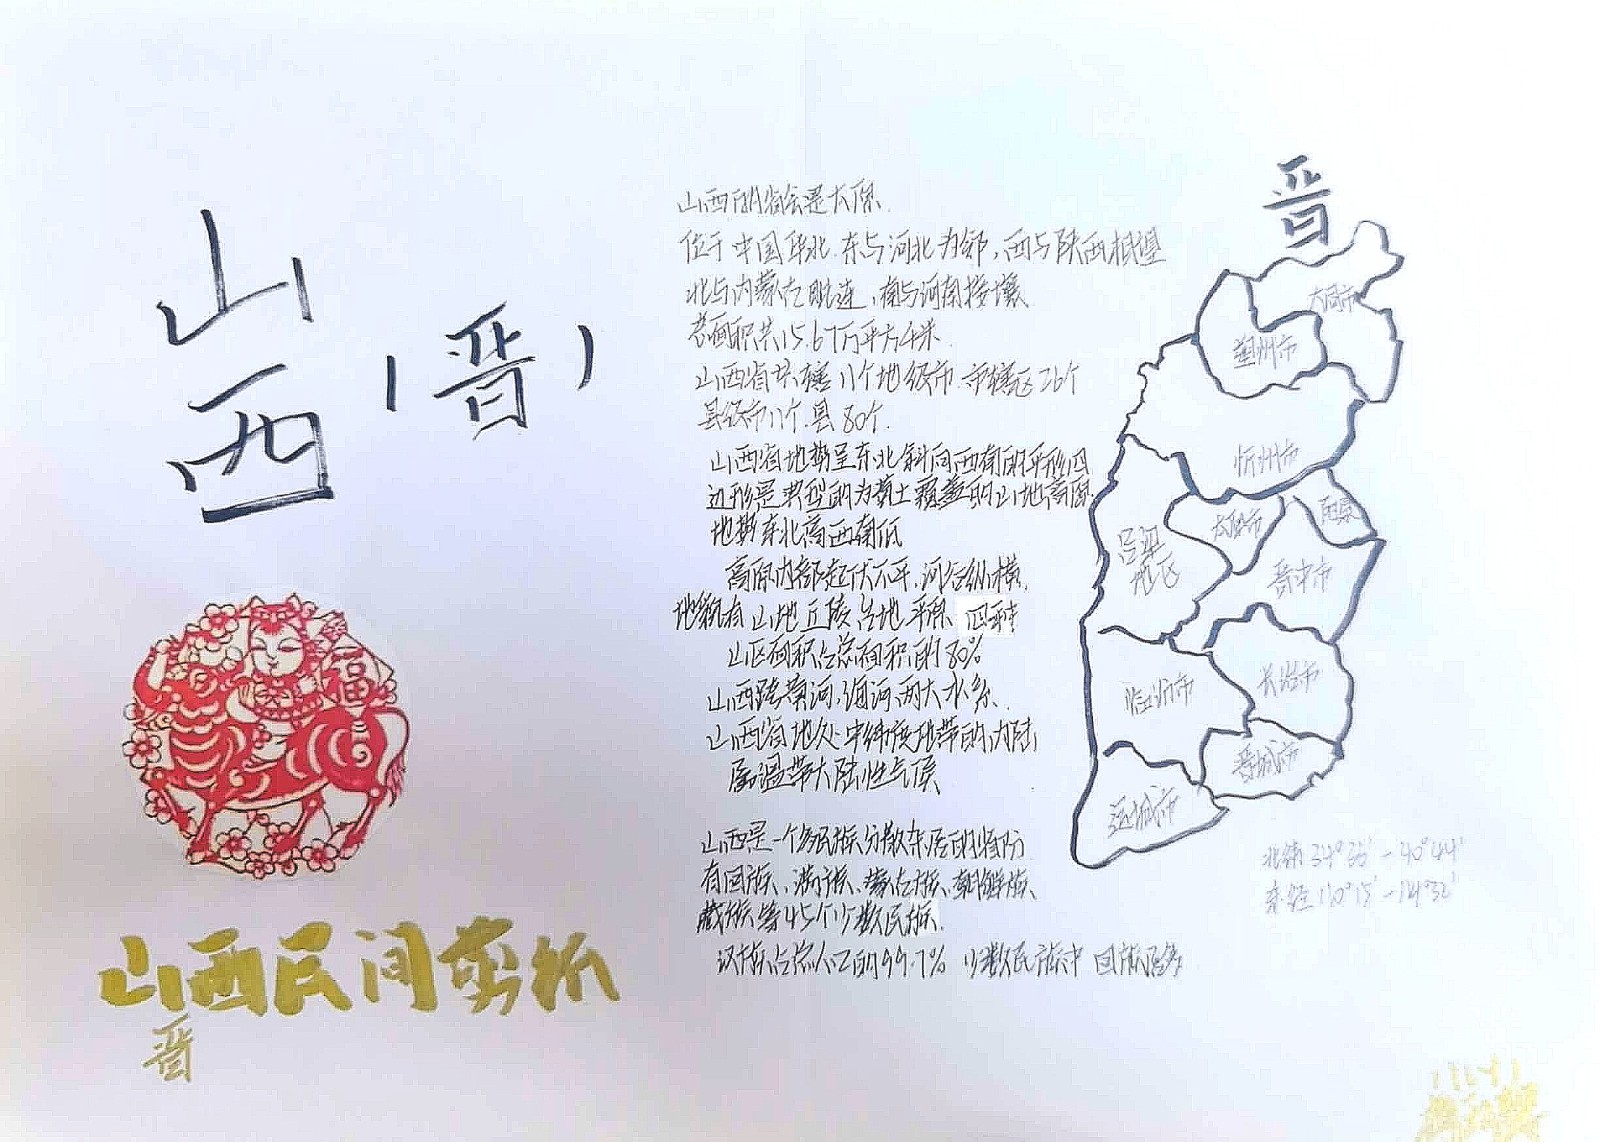 山西
（晋）
福
山西民间剪纸
晋
山西的省会是太原.
位于中国华北.东与河北为邻，西与陕西相望
北与内蒙古毗连，南与河南接壤
总面积共15.67万平方千米.
山西省共辖11个地级市.市辖区26个
县级市11个.县80个.
山西省地势呈东北斜向西南的平行四
边形是典型的为黄土覆盖的山地高原
地势东北高西南低
高原内部起伏不平、河谷纵横.
地貌有山地丘陵台地平原
山区面积占总面积的80%
山西跨黄河，海河两大水系.
山西省地处中纬度地带的内陆
属温带大陆性气候
山西是一个多民族分散杂居的省份
有回族、满族、蒙古族、朝鲜族、
藏族等45个少数民族.
汉族占总人口的99.7% 少数民族中 回族居多
晋
大同市
朔州市
忻州市
吕梁
地区
太原市
阳泉
晋中市
临汾市
长治市
晋城市
运城市
北纬34°36′-40°44′